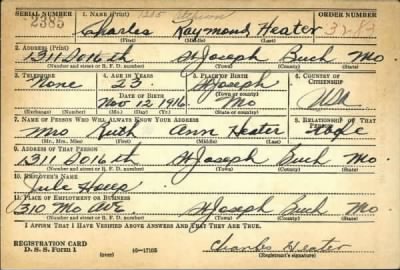 SERIAL NUMBER 1. NAME (Print) ORDER NUMBER
2385 Charles Raymond Heater
(First) (Middle) (Last)
2. ADDRESS (Print)
1311 So 16 th St Joseph Buch Mo
(Number and street or R. F. D. number) (Town) (County) (State)
3. TELEPHONE 4. AGE IN YEARS 5. PLACE OF BIRTH 6. COUNTRY OF CITIZENSHIP
None 23 St Joseph
DATE OF BIRTH (Town or county)
Nov 12 1916 Mo USA
(Exchange) (Number) (Mo.) (Day) (Yr.) (State or country)
7. NAME OF PERSON WHO WILL ALWAYS KNOW YOUR ADDRESS 8. RELATIONSHIP OF THAT PERSON
Mrs Ruth Ann Heater Wife
(Mr., Mrs., Miss) (First) (Middle) (Last)
9. ADDRESS OF THAT PERSON
1311 So 16 th St Joseph Buch Mo
(Number and street or R. F. D. number) (Town) (County) (State)
10. EMPLOYER'S NAME
11. PLACE OF EMPLOYMENT OR BUSINESS
310 Mo Ave St Joseph Buch Mo
(Number and street or R. F. D. number) (Town) (County) (State)
I AFFIRM THAT I HAVE VERIFIED ABOVE ANSWERS AND THAT THEY ARE TRUE.
REGISTRATION CARD
D. S. S. Form 1 (over) 16-17105 Charles Heater